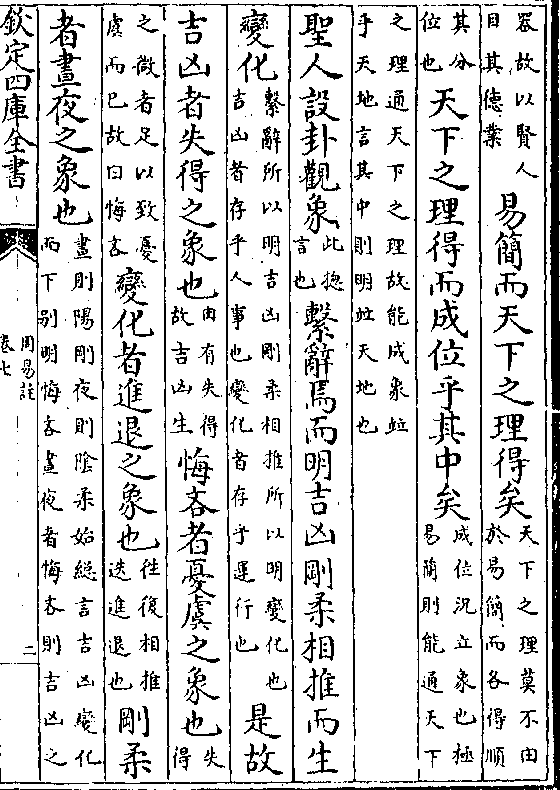 器故以賢人
目其德業
易簡而天下之理得矣
天下之理莫不由
於易簡而各得順
其分
位也
天下之理得而成位乎其中矣
成位況立象也極
易簡則能通天下
之理通天下之理故能成象並
乎天地言其中則明並天地也
聖人設卦觀象
此捴
言也
繫辭焉而明吉凶剛柔相推而生
變化
繫辭所以明吉凶剛柔相推所以明變化也
吉凶者存乎人事也變化者存乎運行也
是故
吉凶者失得之象也
由有失得
故吉凶生
悔吝者憂虞之象也
失
得
之微者足以致憂
虞而已故曰悔吝
變化者進退之象也
往復相推
迭進退也
剛柔
者晝夜之象也
晝則陽剛夜則陰柔始緫言吉凶變化
而下别明悔吝晝夜者悔吝則吉凶之
欽定四庫全書
周易註
卷七
二